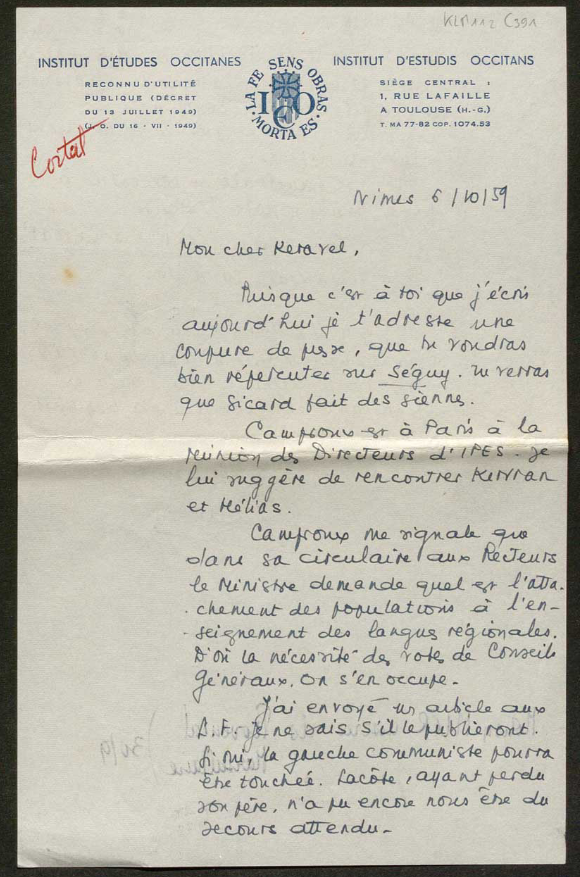 KLM112 C391
INSTITUT D'ÉTUDES OCCITANES
RECONNU D'UTILITÉ
PUBLIQUE (DÉCRET
DU 13 JUILLET 1949)
(J. O. DU 16 - VII - 1949)
LA FE SENS OBRAS
MORTA ES
IEO
INSTITUT D'ESTUDIS OCCITANS
SIÈGE CENTRAL :
1, RUE LAFAILLE
A TOULOUSE (H.-G.)
T. MA 77-82 COP. 1074.53
Nimes 6/10/59
Mon cher Keravel,
Puisque c'est à toi que j'écris
aujourd'hui je t'adresse une
coupure de presse, que tu voudras
bien répercuter sur Séguy. Tu verras
que Sicard fait des siennes.
Camproux est à Paris à la
réunion des Directeurs d'IPES. Je
lui suggère de rencontrer Kervran
et Hélias.
Camproux me signale que
dans sa circulaire aux Recteurs
le Ministre demande quel est l'atta-
-chement des populations à l'en-
-seignement des langues régionales.
D'où la nécessité des votes de Conseils
Généraux. On s'en occupe.
J'ai envoyé un article aux
L.F. Je ne sais s'il le publieront.
Si oui, la gauche communiste pourra
être touchée. Lacôte, ayant perdu
son père, n'a pu encore nous être du
secours attendu.
30/9